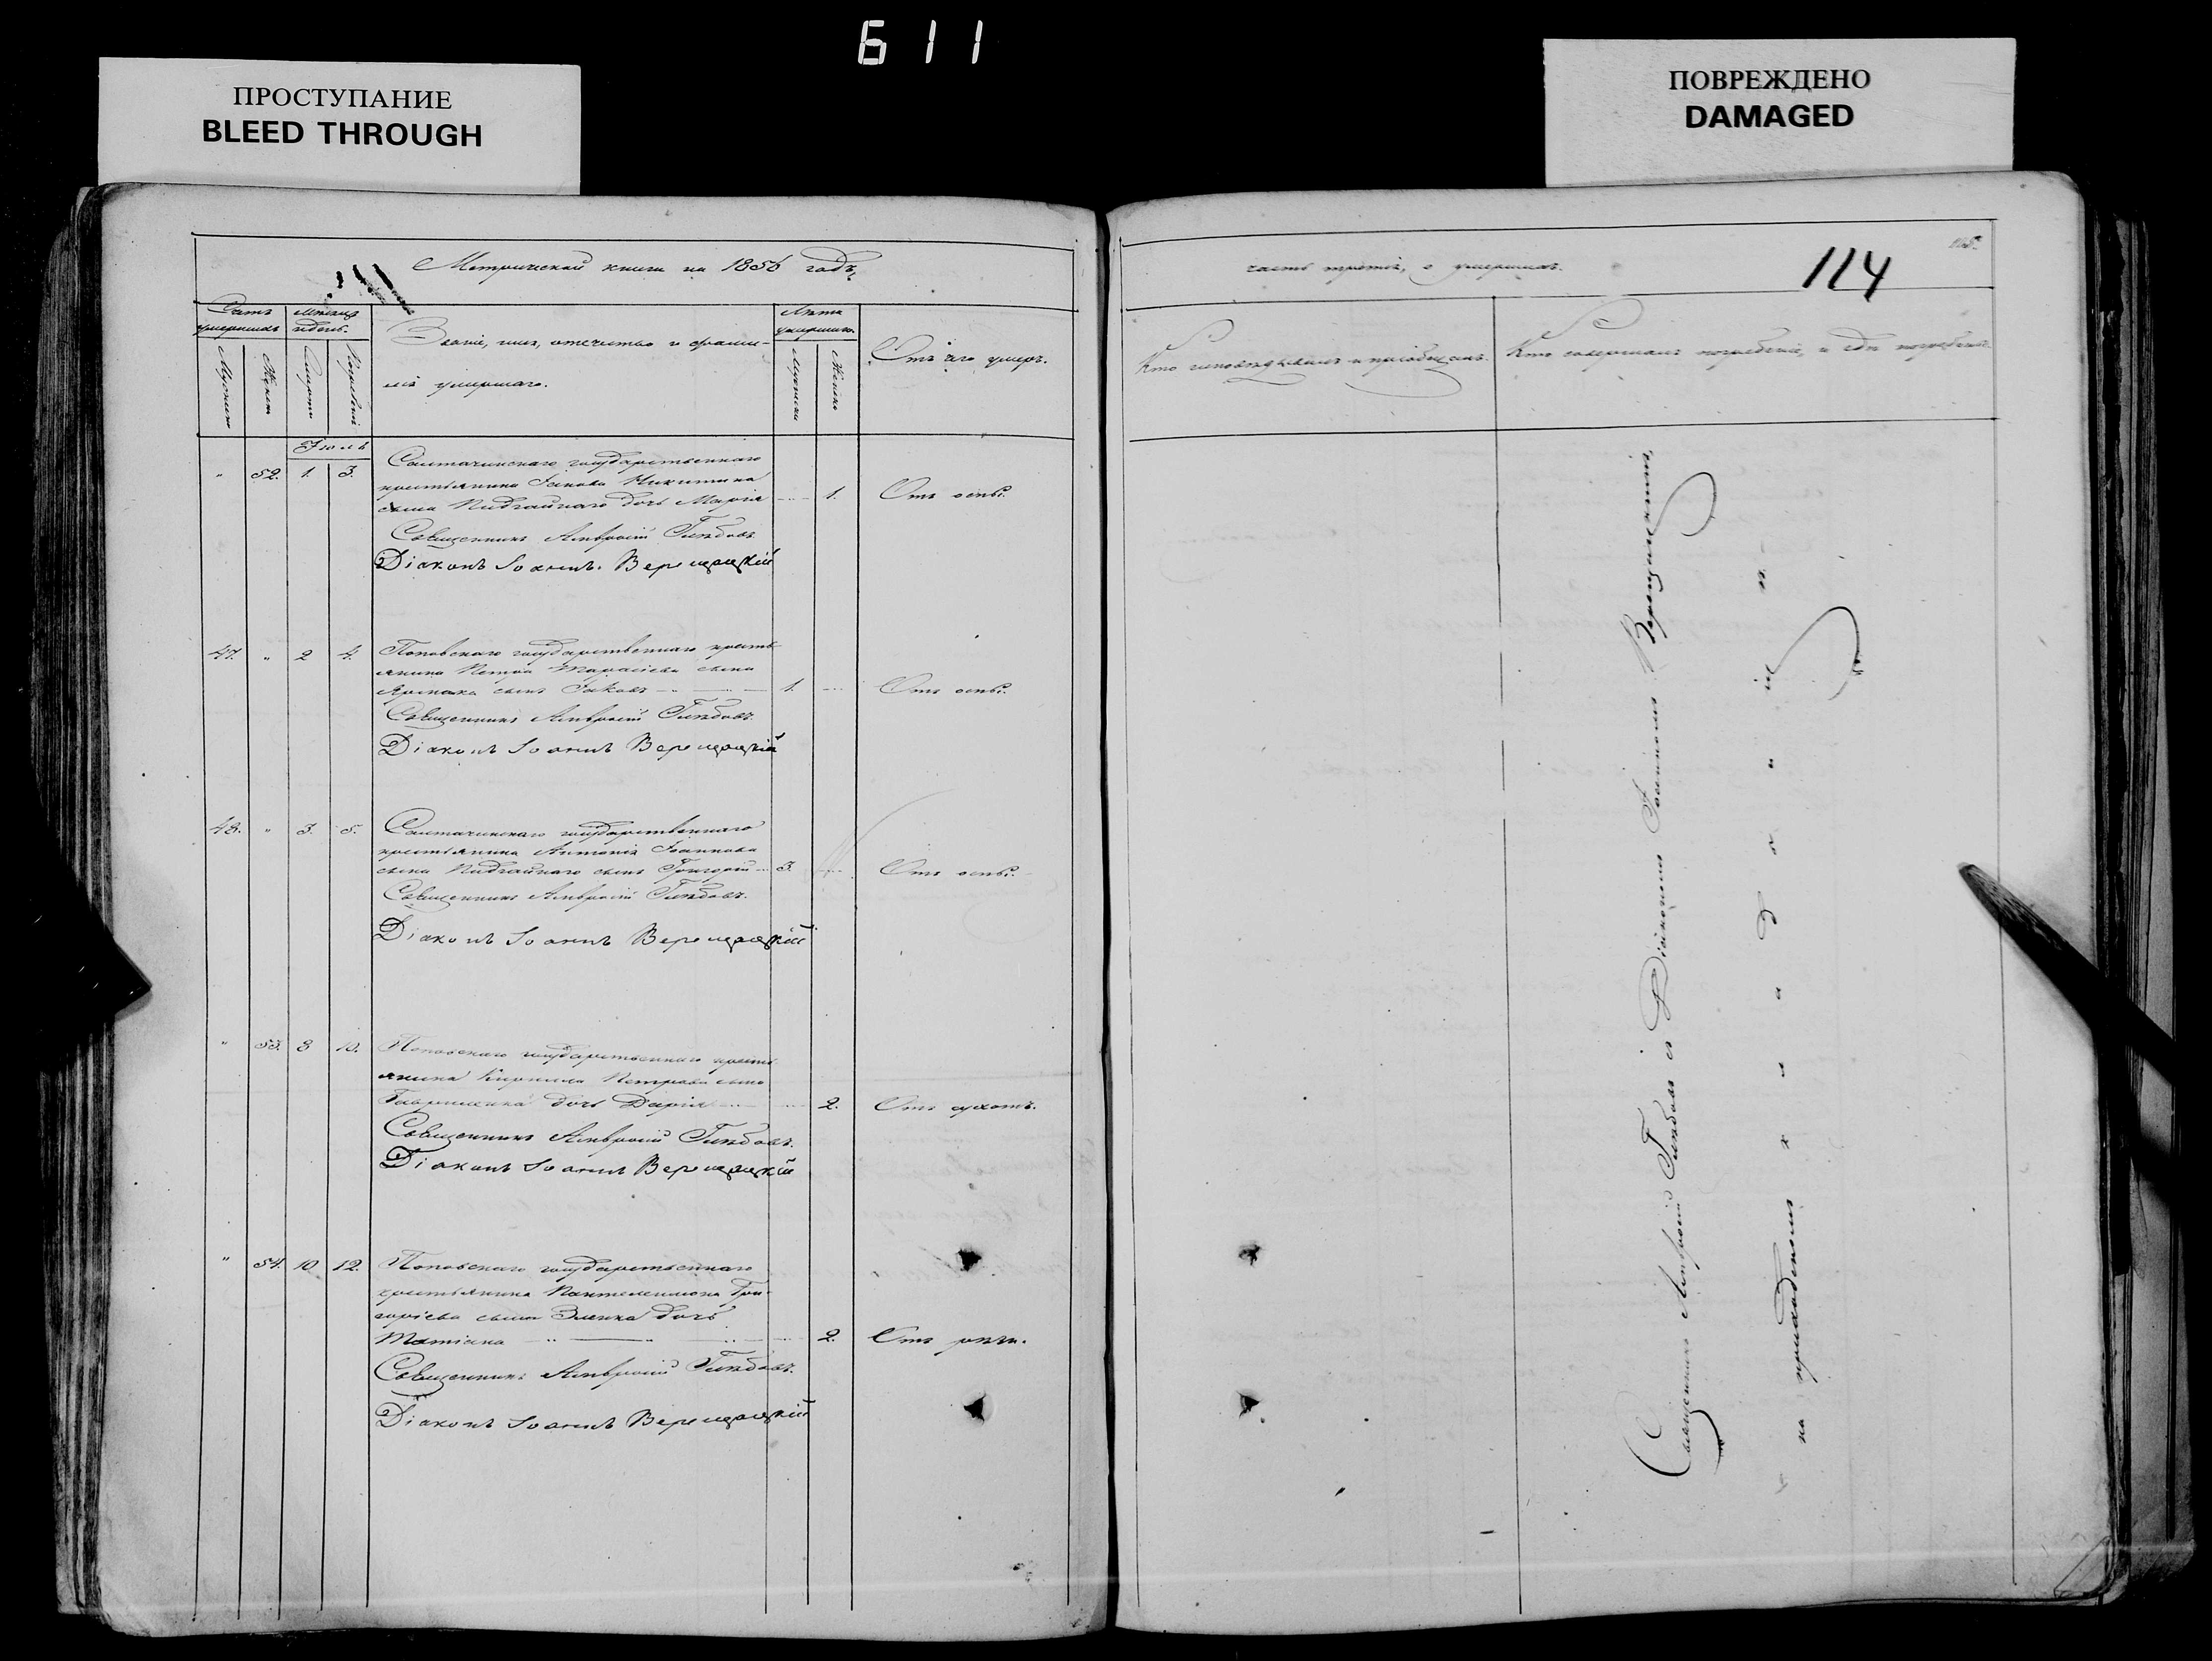 611
ПРОСТУПАНИЕ
BLEED THROUGH
ПОВРЕЖДЕНО
DAMAGED
Метрической книги на 1856 годъ,
Счетъ умершихъ
Мѣсяцъ и день.
Мужеск
Женск
Смерти
Званіе, имя, отечество и фами-
лія умершаго.
Лѣта умершаго.
Мужеска
Женска
Отъ чего умеръ.
Іюль
" 52. 1. 3. государственнаго
крестьянина Іакова Никитина
сына дочь Марія 1. Отъ оспы.
Священникъ Амвросій Глѣбовъ
Діаконъ Іоаннъ Верещацкій
47. " 2 4. Поповскаго государственнаго кресть-
янина Петра сына
сынъ Іаковъ 1. Отъ оспы.
Священникъ Амвросій Глѣбовъ.
Діаконъ Іоаннъ Верещацкій
48. " 3. 5. государственнаго
крестьянина Антонія Іоаннова
сына сынъ Григорій 3. Отъ оспы.
Священникъ Амвросій Глѣбовъ.
Діаконъ Іоаннъ Верещацкій
" 53. 8 10. Поповскаго государственнаго кресть-
янина Кирилла Петрова сына
Гавриленка дочь Дарія 2. Отъ
Священникъ Амвросій Глѣбовъ.
Діаконъ Іоаннъ Верещацкій
" 54. 10 12. Поповскаго государственнаго
крестьянина Пантелеимона Гри-
горіева сына дочь
Татіана 2. Отъ
Священникъ Амвросій Глѣбовъ.
Діаконъ Іоаннъ Верещацкій
часть третія, о умершихъ.
114
Кто исповѣдывалъ и пріобщалъ.
Кто совершалъ погребеніе, и гдѣ погребены.
Священникъ Амвросій Глѣбовъ съ Діакономъ Іоанномъ Верещацкимъ,
на приходскомъ кладбищѣ